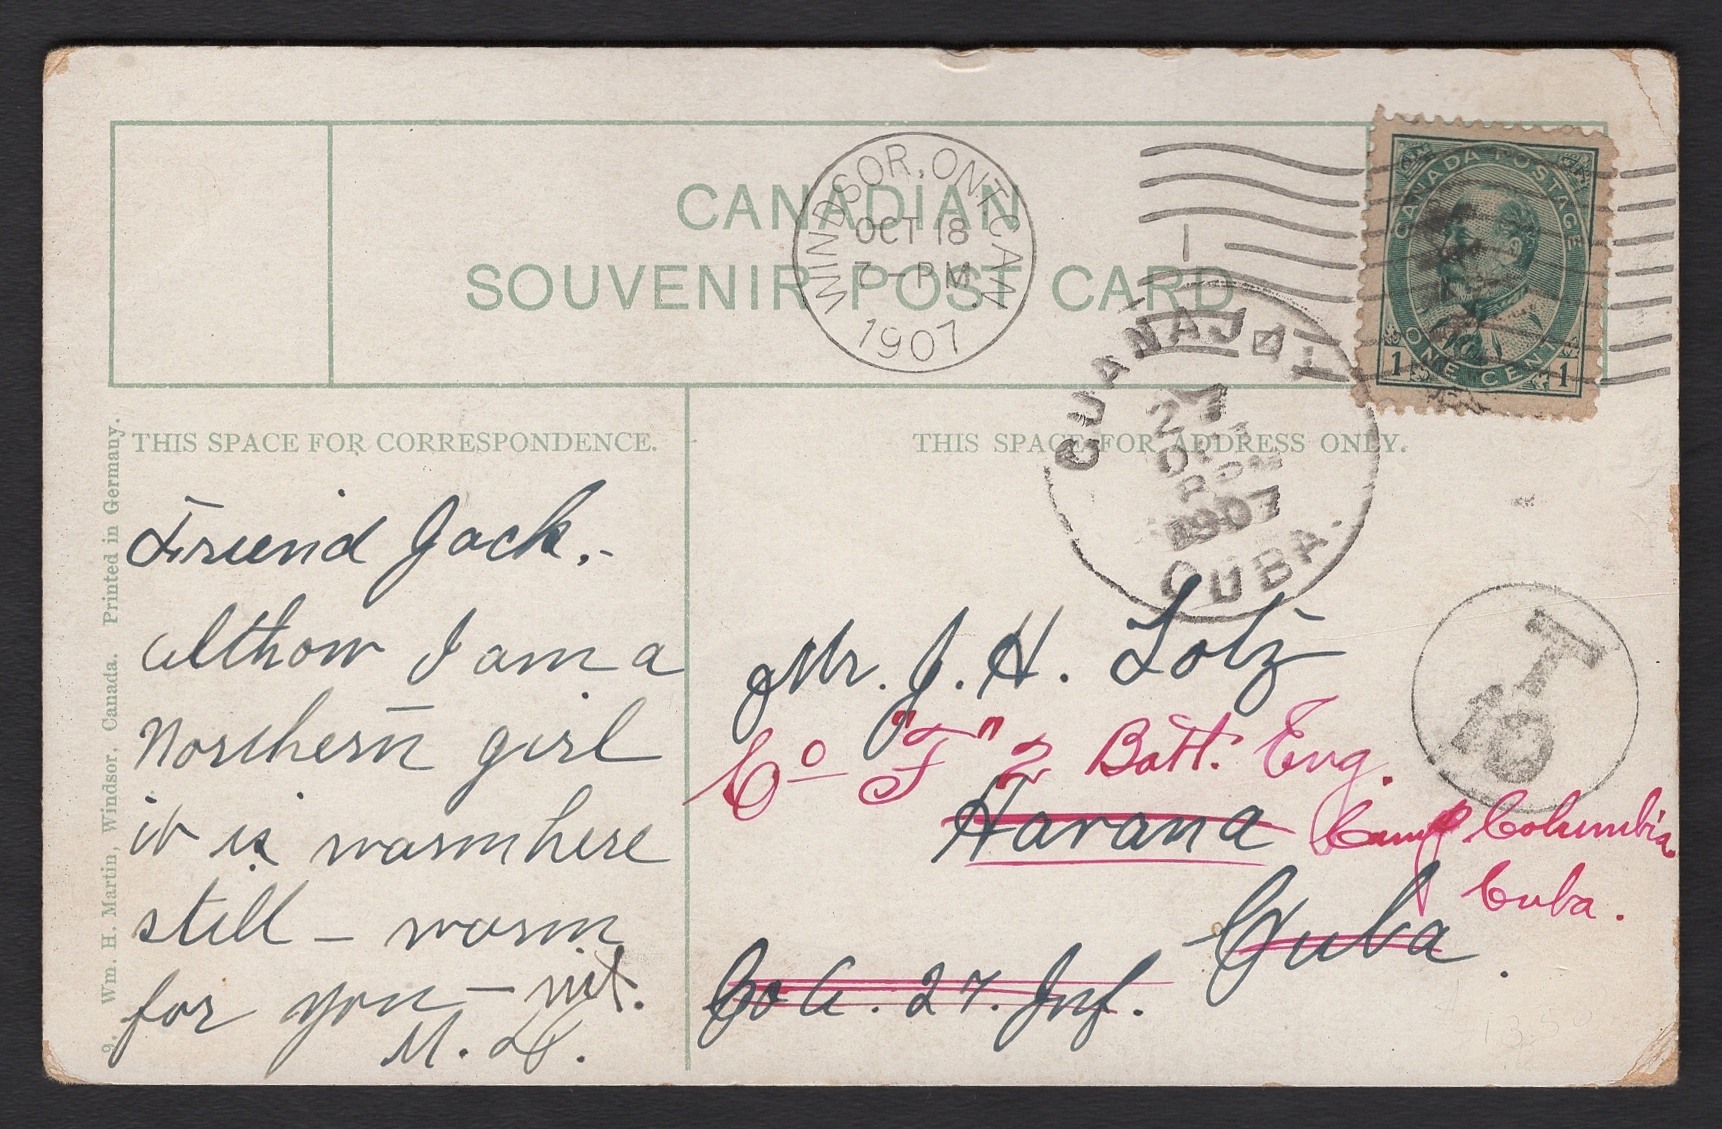 CANADIAN
SOUVENIR POST CARD
WINDSOR, ONT. CAN.
OCT 18
7-PM
1907
CANADA POSTAGE
1 ONE CENT 1
GUANAJAY
27
1907
CUBA.
THIS SPACE FOR CORRESPONDENCE.
THIS SPACE FOR ADDRESS ONLY.
9. Wm. H. Martin, Windsor, Canada. Printed in Germany.
Friend Jack.-
Althow I am a
Northern girl
it is warm here
still – warm
for you – nit.
M. D.
Mr. J. H. Lotz
Co "F" 2 Batt. Eng.
Havana Camp Columbia
Cuba.
Cuba.
Co A. 27. Inf.
T